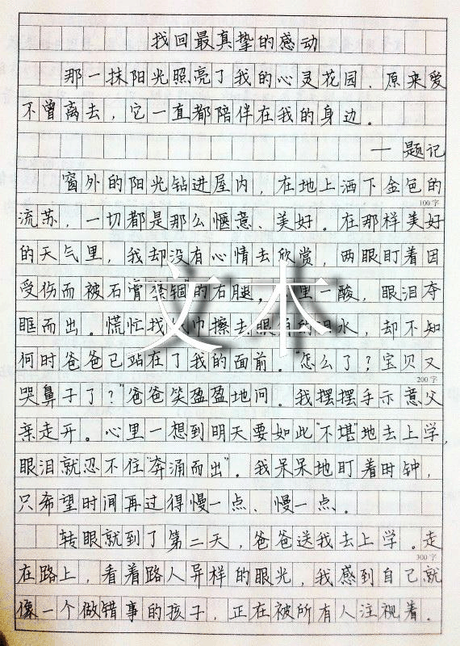 找回最真挚的感动
那一抹阳光照亮了我的心灵花园，原来爱
不曾离去，它一直都陪伴在我的身边。
一题记
窗外的阳光钻进屋内，在地上洒下金色的
100字
流苏，一切都是那么惬意、美好。在那样美好
的天气里，我却没有心情去欣赏，两眼盯着因
受伤而被石膏禁锢的右腿。里一酸，眼泪夺
眶而出。慌忙找巾擦去眼水，却不知
何时爸爸已站在了我的面前。“怎么了？宝贝又
200字
哭鼻子了？”爸爸笑盈盈地问。我摆摆手示意父
亲走开。心里一想到明天要如此“不堪”地去上学，
眼泪就忍不住“奔涌而出”。我呆呆地盯着时钟，
只希望时间再过得慢一点、慢一点。
转眼就到了第二天，爸爸送我去上学。走
300字
在路上，看着路人异样的眼光，我感到自己就
像一个做错事的孩子，正在被所有人注视着。
文本